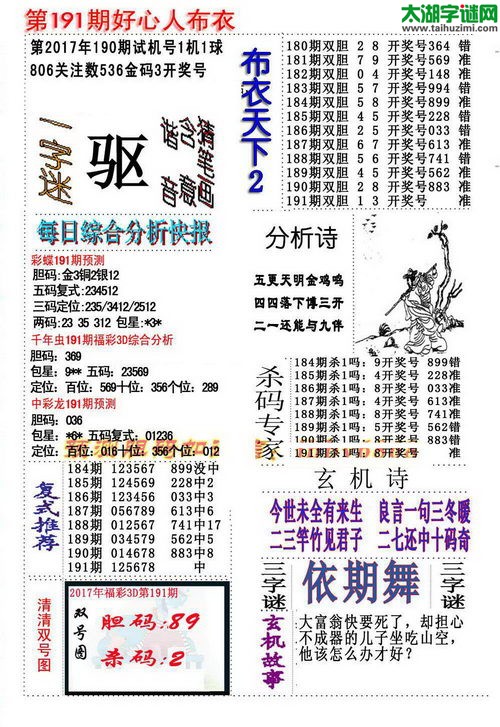 第191期好心人布衣
太湖字谜网
www.taihuzimi.com
第2017年190期试机号1机1球
806关注数536金码3开奖号
一字迷
驱
猜笔画
含藏
猜音
每日综合分析快报
彩蝶191期预测
胆码:金3铜2银12
五码复式:234512
三码定位:235/3412/2512
两码:23 35 312 包星:*3*
千年虫191期福彩3D综合分析
胆码:369
包星:9** 五码:23569
定位:百位:569十位:356个位:289
中彩龙191期预测
胆码:036
包星:*6* 五码复式:01236
定位:百位:016十位:356个位:012
复式推荐
184期 123567 899没中
185期 124569 228中2
186期 123456 033中6
187期 056789 613中6
188期 012567 741中17
189期 034579 562中5
190期 014678 883中8
191期 125678 中
清清双号图
2017年福彩3D第191期
双号图
胆码:89
杀码:2
布衣天下2
180期双胆 2 8 开奖号364 错
181期双胆 7 9 开奖号569 准
182期双胆 0 4 开奖号148 准
183期双胆 5 7 开奖号994 错
184期双胆 5 8 开奖号899 准
185期双胆 4 5 开奖号228 错
186期双胆 2 5 开奖号033 错
187期双胆 6 7 开奖号613 准
188期双胆 5 6 开奖号741 错
189期双胆 4 5 开奖号562 准
190期双胆 2 8 开奖号883 准
191期双胆 1 3 开奖号 准
分析诗
五更天明金鸡鸣
四四落下博三开
二一还能与九伴
杀码专家
184期杀1吗:9开奖号899错
185期杀1吗:4开奖号228准
186期杀1吗:9开奖号033准
187期杀1吗:4开奖号613准
188期杀1吗:8开奖号741准
189期杀1吗:2开奖号562错
190期杀1吗:8开奖号883错
191期杀1吗:8开奖号 准
玄机诗
今世未全有来生 良言一句三冬暖
二三竿竹见君子 二七还中十码奇
三字谜
依期舞
三字谜
玄机故事
大富翁快要死了,却担心
不成器的儿子坐吃山空,
他该怎么办才好?